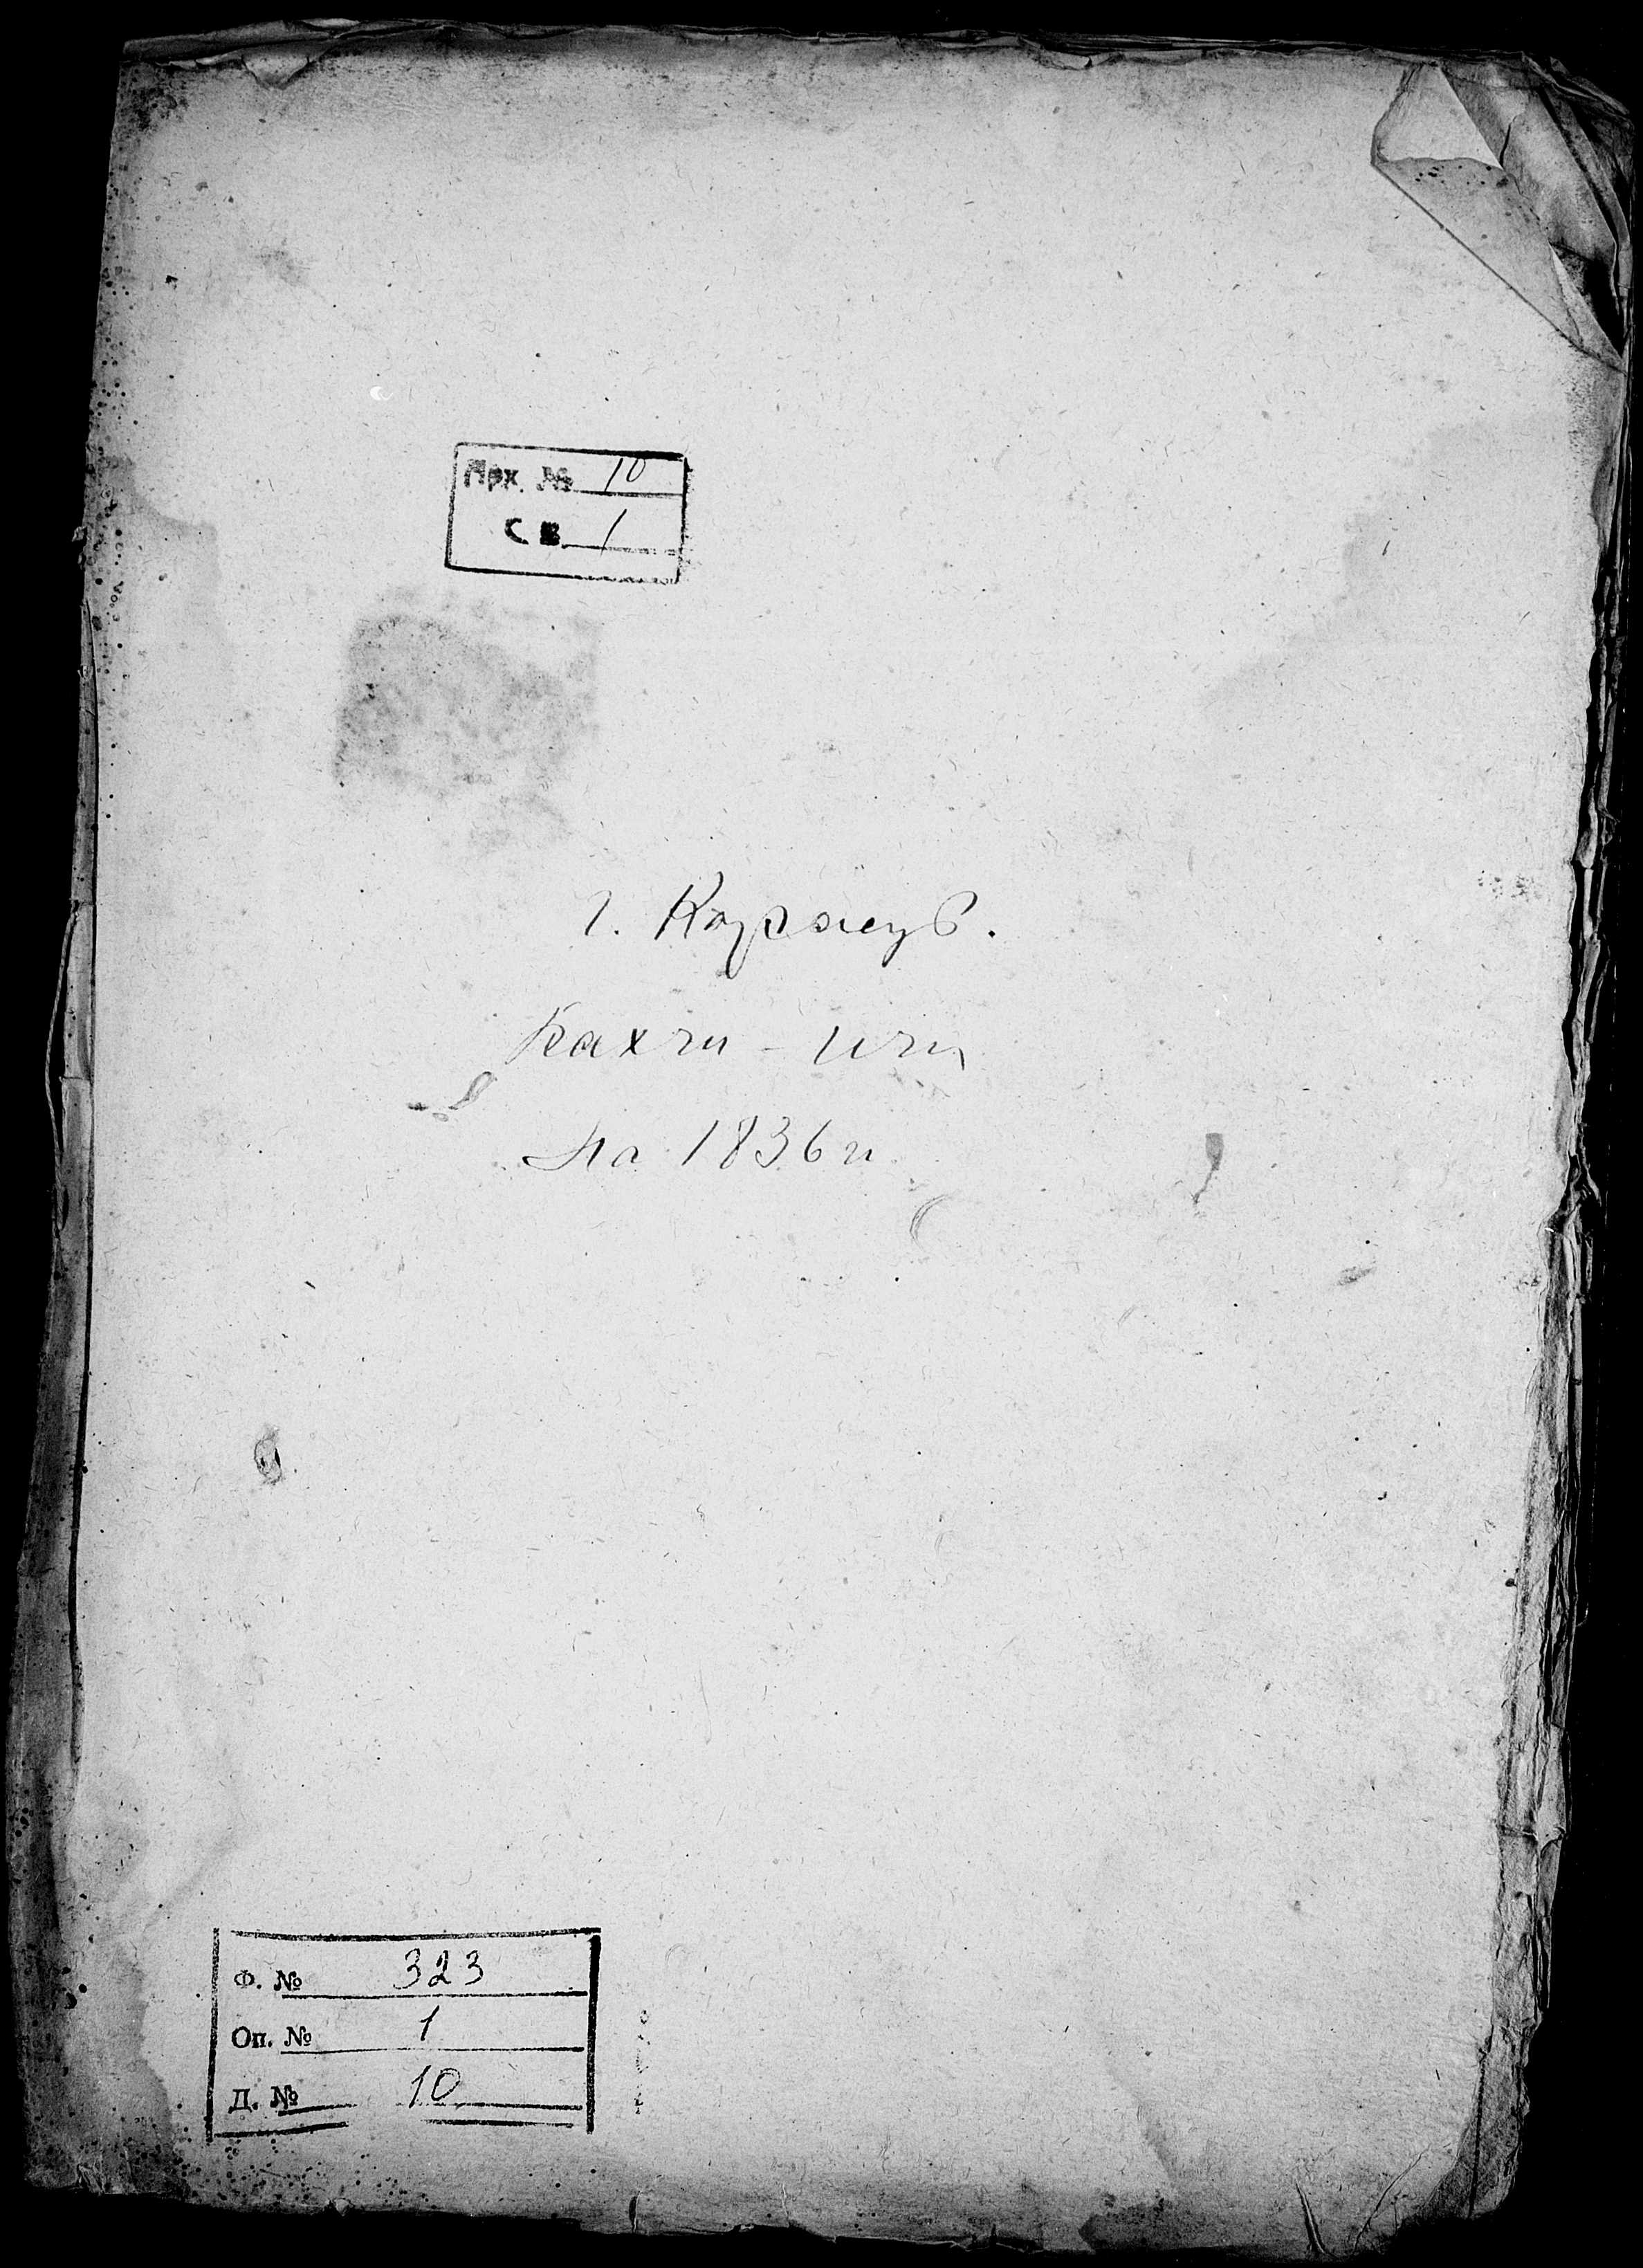 Арх. № 10
СВ. 1
г. Карасуб.
Кахчи - ичи
на 1836 г.
Ф. № 323
Оп. № 1
Д. № 10